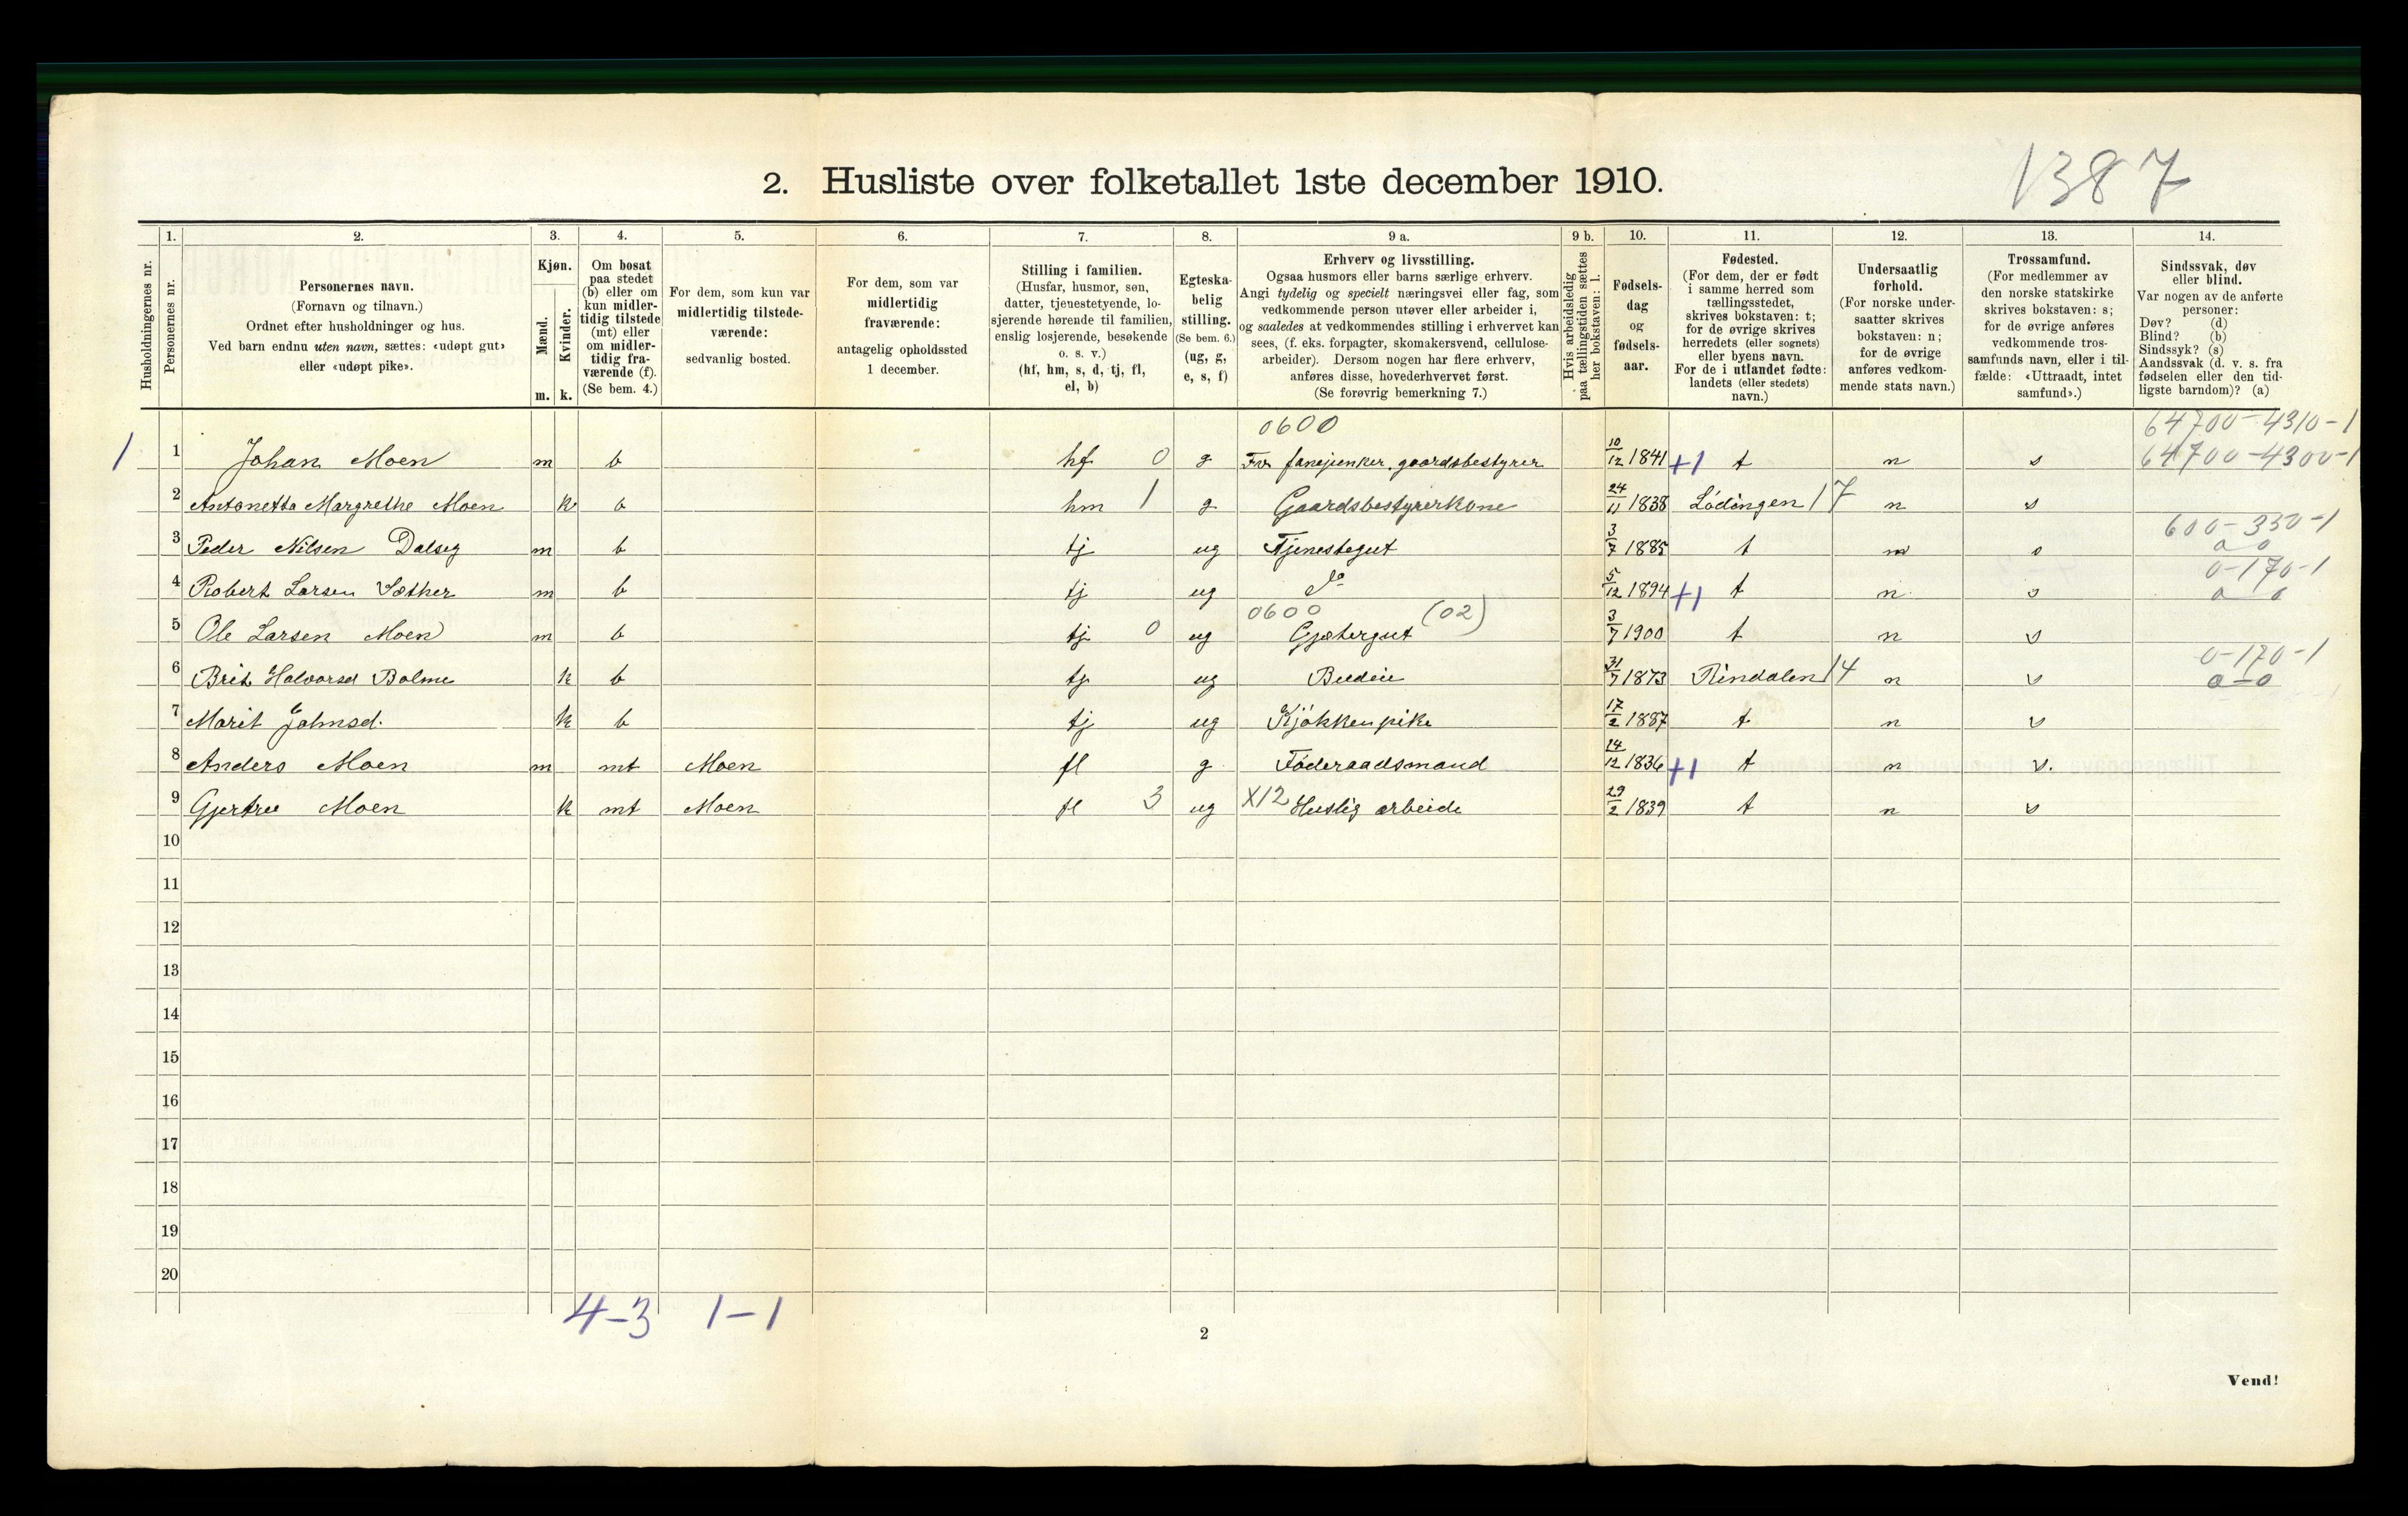 1387
2. Husliste over folketallet 1ste december 1910.
Husholdningernes nr.
1. Personernes nr.
2. Personernes navn.
(Fornavn og tilnavn.)
Ordnet efter husholdninger og hus.
Ved barn endnu uten navn, sættes: «udøpt gut»
eller «udøpt pike».
3. Kjøn.
Mænd. m.
Kvinder. k.
4. Om bosat
paa stedet
(b) eller om
kun midler-
tidig tilstede
(mt) eller
om midler-
tidig fra-
værende (f).
(Se bem. 4.)
5. For dem, som kun var
midlertidig tilstede-
værende:
sedvanlig bosted.
6. For dem, som var
midlertidig
fraværende:
antagelig opholdssted
1 december.
7. Stilling i familien.
(Husfar, husmor, søn,
datter, tjenestetyende, lo-
sjerende hørende til familien,
enslig losjerende, besøkende
o. s. v.)
(hf, hm, s, d, tj, fl,
el, b)
8. Egteska-
belig
stilling.
(Se bem. 6.)
(ug, g,
e, s, f)
9 a. Erhverv og livsstilling.
Ogsaa husmors eller barns særlige erhverv.
Angi tydelig og specielt næringsvei eller fag, som
vedkommende person utøver eller arbeider i,
og saaledes at vedkommendes stilling i erhvervet kan
sees, (f. eks. forpagter, skomakersvend, cellulose-
arbeider). Dersom nogen har flere erhverv,
anføres disse, hovederhvervet først.
(Se forøvrig bemerkning 7.)
9 b. Hvis arbeidsledig
paa tællingstiden sættes
her bokstaven: l.
10. Fødsels-
dag
og
fødsels-
aar.
11. Fødested.
(For dem, der er født
i samme herred som
tællingsstedet,
skrives bokstaven: t;
for de øvrige skrives
herredets (eller sognets)
eller byens navn.
For de i utlandet fødte:
landets (eller stedets)
navn.)
12. Undersaatlig
forhold.
(For norske under-
saatter skrives
bokstaven: n;
for de øvrige
anføres vedkom-
mende stats navn.)
13. Trossamfund.
(For medlemmer av
den norske statskirke
skrives bokstaven: s;
for de øvrige anføres
vedkommende tros-
samfunds navn, eller i til-
fælde: «Uttraadt, intet
samfund».)
14. Sindssvak, døv
eller blind.
Var nogen av de anførte
personer:
Døv? (d)
Blind? (b)
Sindssyk? (s)
Aandssvak (d. v. s. fra
fødselen eller den tid-
ligste barndom)? (a)
0600 64700-4310-1
1 1 Johan Moen m b hf 0 g Fv. fanejunker, gaardsbestyrer 10/12 1841 +1 t n s 64700-4300-1
2 Antonetta Margrethe Moen k b hm 1 g Gaardsbestyrerkone 24/11 1838 Lødingen 17 n s
600-350-1
3 Peder Nilsen Dalseg m b tj ug Tjenestegut 3/7 1885 t n s 0 0
0-170-1
4 Robert Larsen Sæther m b tj ug do 5/12 1894 +1 t n s 0 0
0600 (02)
5 Ole Larsen Moen m b tj 0 ug Gjætergut 3/7 1900 t n s
0-170-1
6 Brit Halvorsd Bolme k b tj ug Budeie 31/7 1873 Rindalen 14 n s 0-0
7 Marit Johnsd. k b tj ug Kjøkkenpike 17/2 1887 t n s
8 Anders Moen m mt Moen fl g Føderaadsmand 14/12 1836 +1 t n s.
9 Gjertru Moen k mt Moen fl 3 ug X12 Huslig arbeide 29/2 1839 t n s
10
11
12
13
14
15
16
17
18
19
20
4-3 1-1
2
Vend!